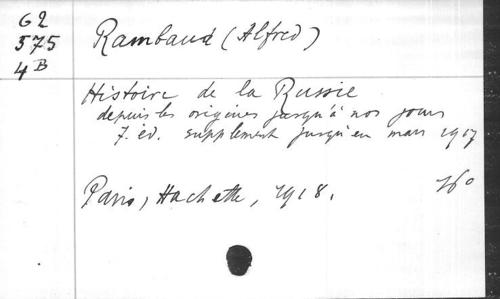 62
575
4B
Rambaud (Alfred)
Histoire de la Russie
depuis les origines jusqu'à nos jours
7. éd. supplément jusqu'en mars 1917
Paris, Hachette, 1918.
16°